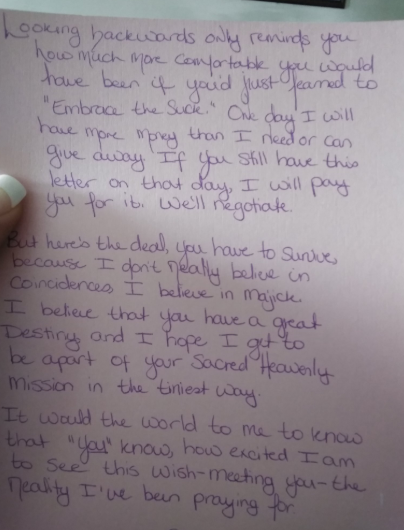 Looking backwards only reminds you
how much more comfortable you would
have been if you'd just learned to
"Embrace the Suck." One day I will
have more money than I need or can
give away. If you still have this
letter on that day, I will pay
you for it. We'll negotiate.
But here's the deal, you have to survive,
because I don't really believe in
coincidences, I believe in Majick.
I believe that you have a great
Destiny, and I hope I get to
be apart of your Sacred Heavenly
Mission in the tiniest way.
It would the world to me to know
that "you" know, how excited I am
to see this wish-meeting you-the
reality I've been praying for